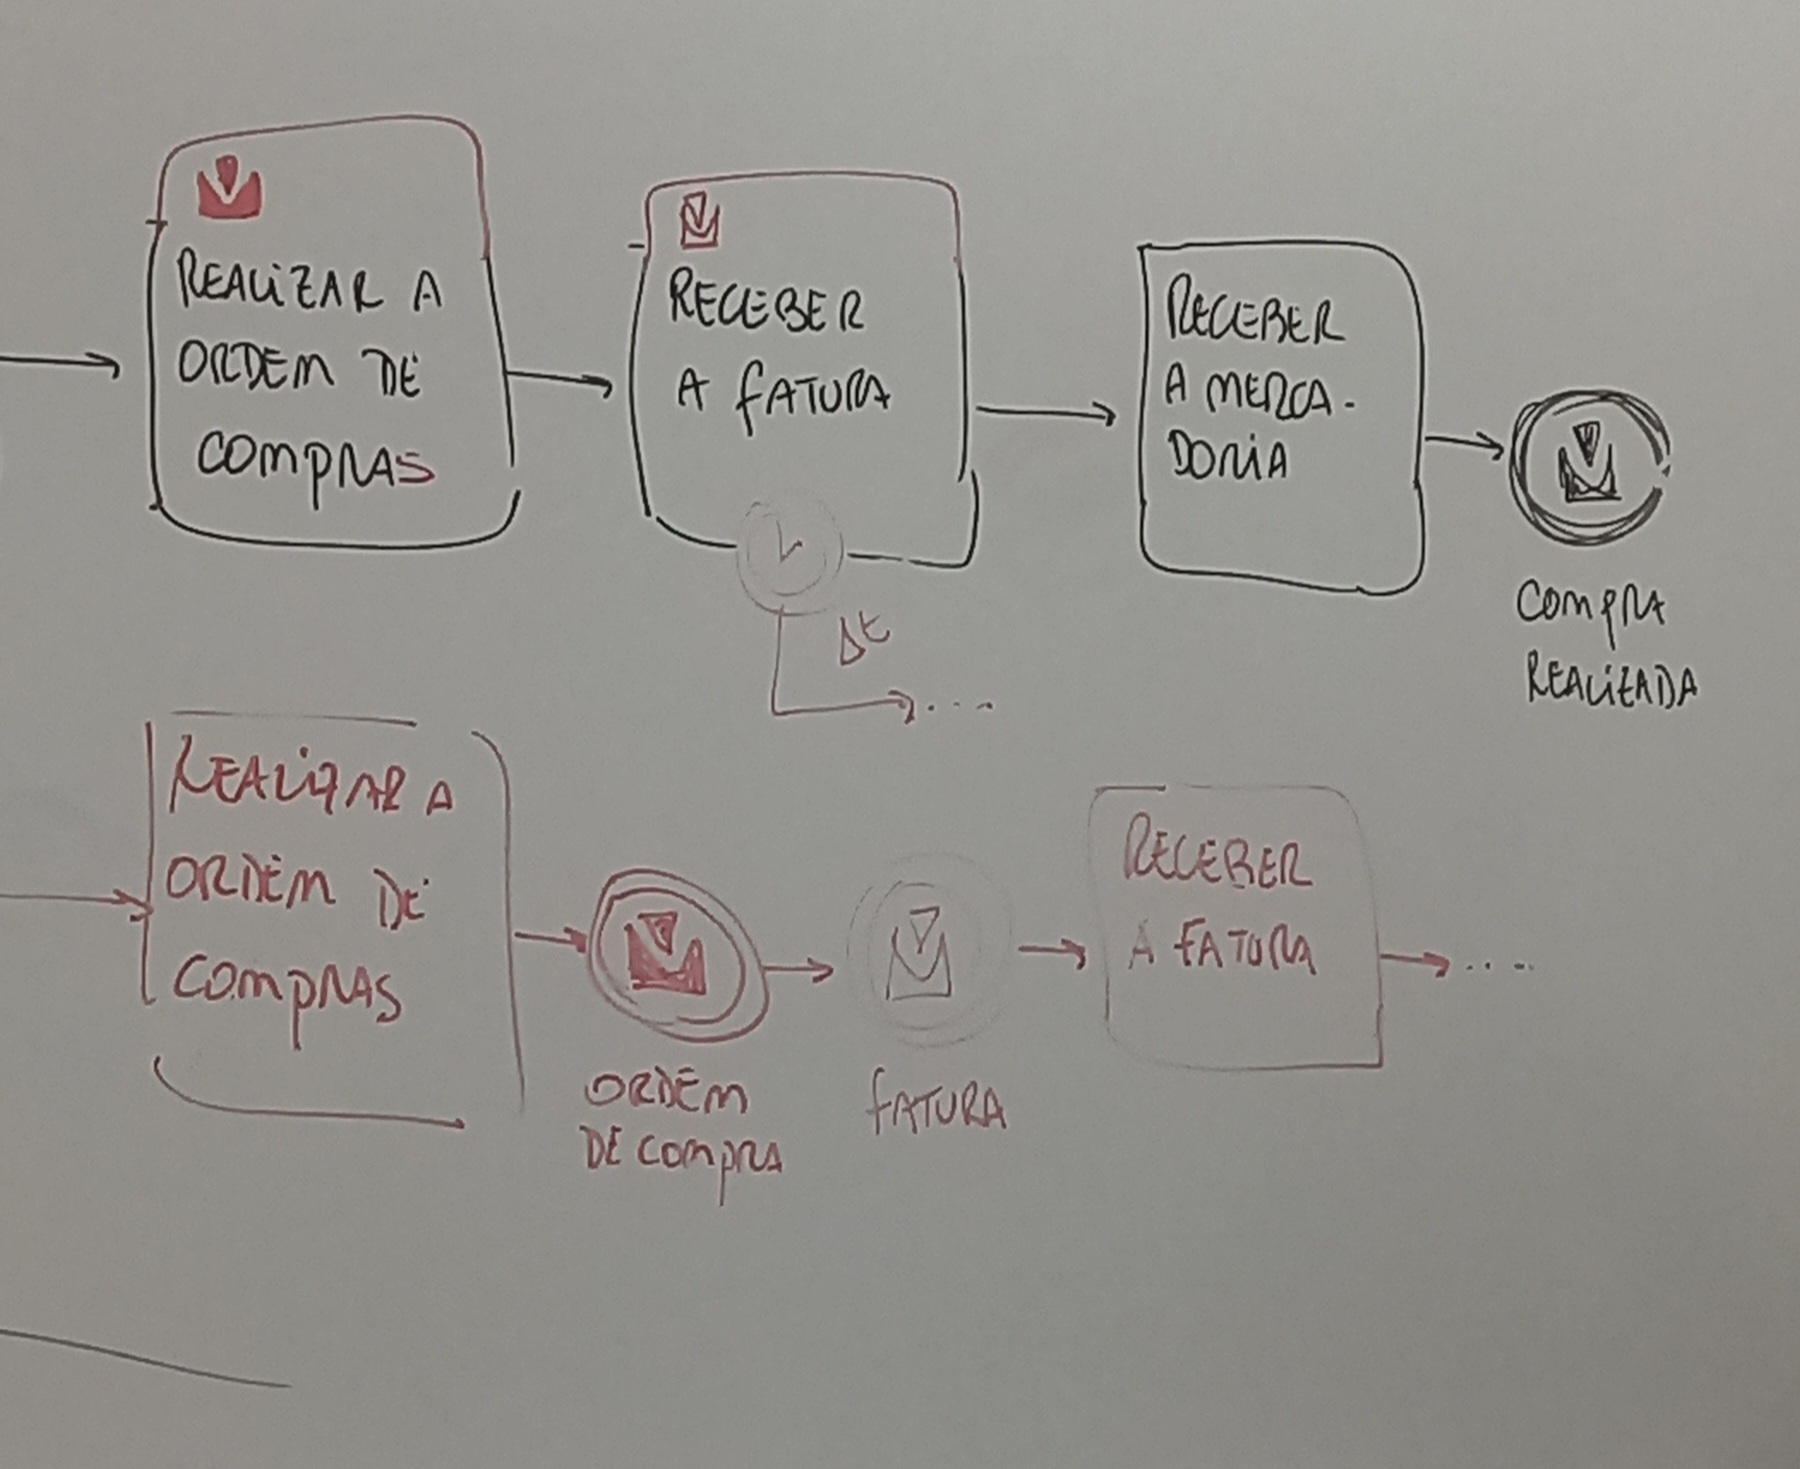 REALIZAR A
ORDEM DE
COMPRAS
RECEBER
A FATURA
Δt
RECEBER
A MERCA-
DORIA
COMPRA
REALIZADA
REALIZAR A
ORDEM DE
COMPRAS
ORDEM
DE COMPRA
FATURA
RECEBER
A FATURA
....
....